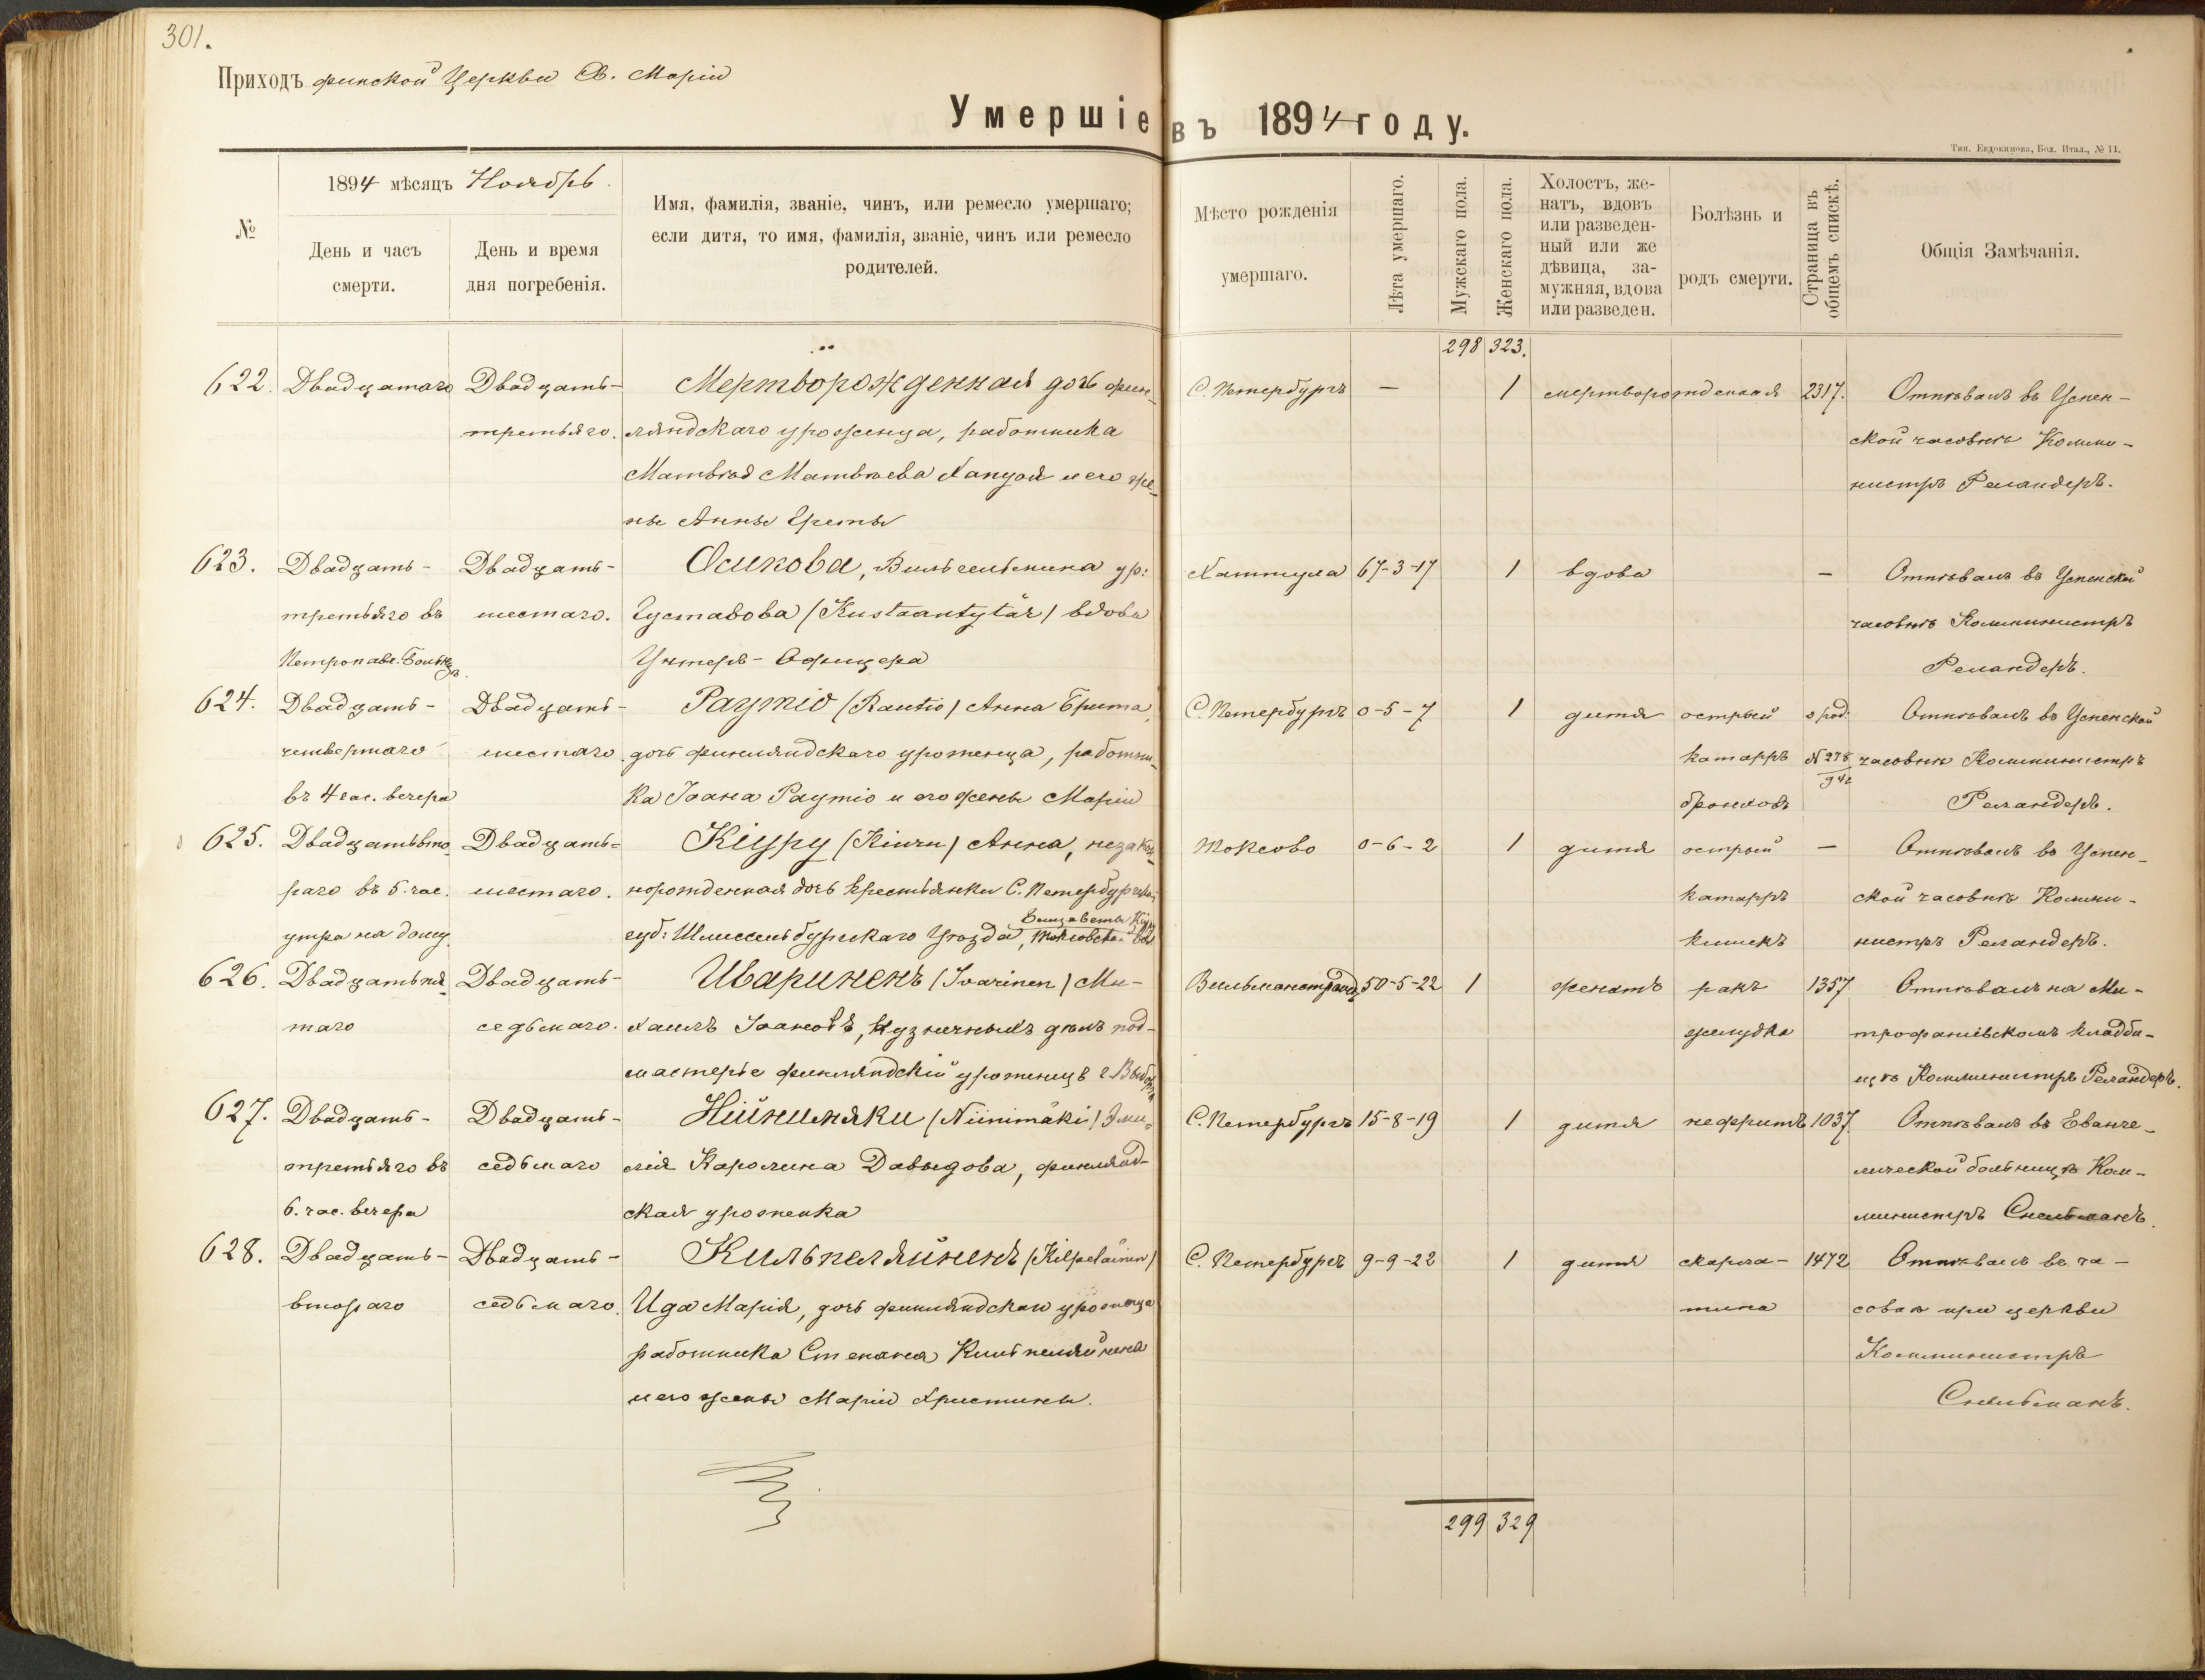 301.
Приходъ финской Церкви Св. Маріи
Умершіе въ 1894 году.
Тип. Евдокимова, Бол. Итал., № 11.
№
1894 мѣсяцъ Ноябрь.
День и часъ смерти.
День и время дня погребенія.
Имя, фамилія, званіе, чинъ, или ремесло умершаго;
если дитя, то имя, фамилія, званіе, чинъ или ремесло
родителей.
Мѣсто рожденія
умершаго.
Лѣта умершаго.
Мужскаго пола.
Женскаго пола.
Холостъ, же-
натъ, вдовъ
или разведен-
ный или же
дѣвица, за-
мужняя, вдова
или разведен.
Болѣзнь и
родъ смерти.
Страница въ
общемъ спискѣ.
Общія Замѣчанія.
298 323.
622. Двадцатаго Двадцать- Мертворожденная дочь фин- С. Петербургъ — 1 мертворожденная 2317. Отпѣвалъ въ Успен-
третьяго. ляндскаго уроженца, работника ской часовнѣ Комми-
Матвѣя Матвѣева Хапуоя и его же- нистръ Реландеръ.
ны Анны Греты
623. Двадцать- Двадцать- Осипова, Вильгельмина ур: Хаттула 67-3-17 1 вдова — Отпѣвалъ въ Успенской
третьяго въ шестаго. Густавова (Kustaantytär) вдова часовнѣ Коммининстръ
Петропавл. Больн. Унтеръ-Офицера Реландеръ.
624. Двадцать- Двадцать- Раутіо (Rautio) Анна Брита, С. Петербургъ 0-5-7 1 дитя острый Отпѣвалъ въ Успенской
четвертаго шестаго. дочь финляндскаго уроженца, работни- катарръ № 278 часовнѣ Коммининстръ
въ 4 час. вечера ка Іоана Раутіо и его жены Маріи бронховъ 942 Реландеръ.
625. Двадцатьвто- Двадцать- Кіуру (Kiuru) Анна, незакон- Токсово 0-6-2 1 дитя острый — Отпѣвалъ въ Успен-
раго въ 5 час. шестаго. норожденная дочь крестьянки С. Петербургской катарръ ской часовнѣ Комми-
Елизаветы Кіуру
утра на дому. губ: Шлиссельбургскаго Уѣзда, Токсовской вол кишекъ нистръ Реландеръ.
626. Двадцатьпя- Двадцать- Иваринен​ъ (Ivarinen) Ми- Вильманстрандъ 50-5-22 1 женатъ ракъ 1357 Отпѣвалъ на Ми-
таго седьмаго. хаилъ Іоановъ, кузнечныхъ дѣлъ под- желудка трофаніевскомъ кладби-
мастерье финляндскій уроженецъ г. Выборга щѣ Коммининстръ Реландеръ.
627. Двадцать- Двадцать- Нійнимяки (Niinimäki) Эми- С. Петербургъ 15-8-19 1 дитя нефритъ 1037. Отпѣвалъ въ Еванге-
третьяго въ седьмаго лія Каролина Давыдова, финлянд- лической больницѣ Ком-
6. час. вечера ская уроженка мининстръ Снельманъ.
628. Двадцать- Двадцать- Кильпеляйненъ (Kilpeläinen) С. Петербургъ 9-9-22 1 дитя скарла- 1472 Отпѣвалъ въ ча-
втораго седьмаго. Ида Марія, дочь финляндскаго уроженца тина совнѣ при церкви
работника Степана Кильпеляйнена Коммининстръ
и его жены Маріи Христины. Снельманъ.
299 329